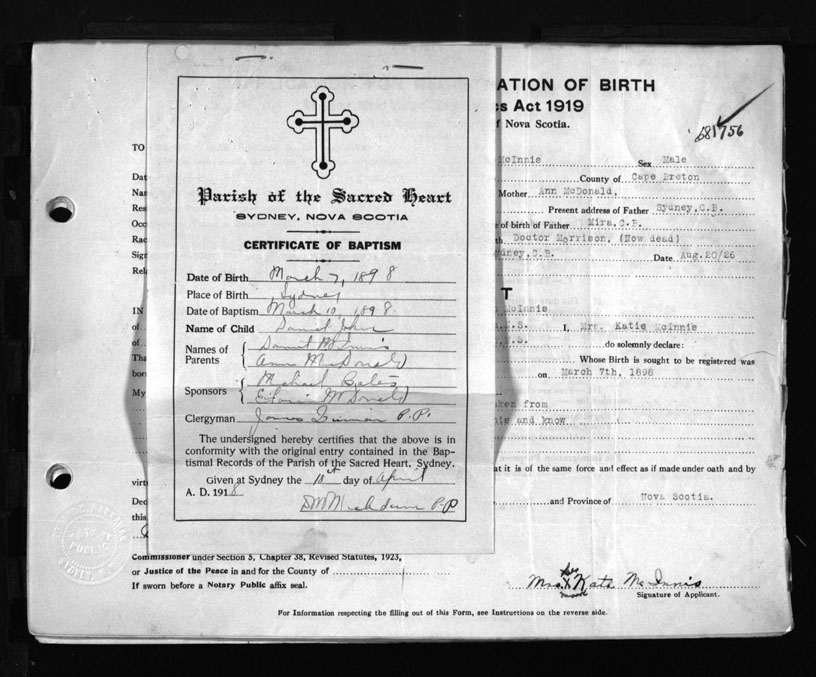 ATION OF BIRTH
s Act 1919
f Nova Scotia.
581756
TO
McInnis Sex Male
County of Cape Breton
Mother Ann McDonald,
Present address of Father Sydney, C.B.
e of birth of Father Mira, C.B.
h Doctor Morrison, (Now dead)
dney, C.B. Date Aug. 20/26
Dat
Nan
Res
Occ
Rac
Sign
Rela
Parish of the Sacred Heart
SYDNEY, NOVA SCOTIA
CERTIFICATE OF BAPTISM
Date of Birth March 7, 1898
Place of Birth Sydney
Date of Baptism March 10 1898
Name of Child Daniel John
Names of Parents { Daniel McInnis
Ann McDonald
Sponsors { Michael Bates
McDonald
Clergyman James P.P.
The undersigned hereby certifies that the above is in
conformity with the original entry contained in the Bap-
tismal Records of the Parish of the Sacred Heart, Sydney.
Given at Sydney the day of April
A. D. 1918
P.P.
T
McInnis
IN
of S. I, Mrs. Katie McInnis
of S. do solemnly declare:
Tha Whose Birth is sought to be registered was
born on March 7th, 1898
My
ken from
ts and know
at it is of the same force and effect as if made under oath and by
virt
Dec and Province of Nova Scotia.
this
Commissioner under Section 5, Chapter 38, Revised Statutes, 1923,
or Justice of the Peace in and for the County of
If sworn before a Notary Public affix seal.
her
Mrs. X Kate McInnis
mark
Signature of Applicant.
For Information respecting the filling out of this Form, see Instructions on the reverse side.